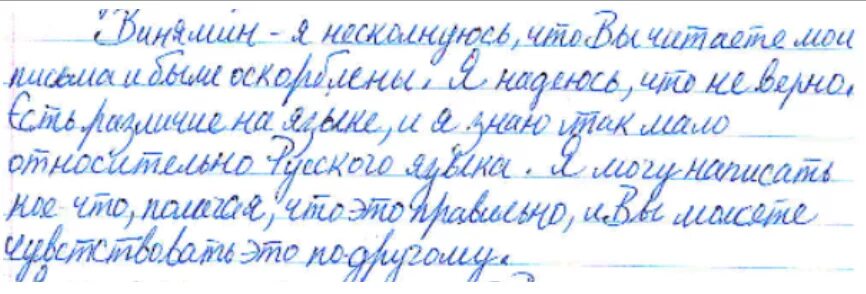 "Винямин - я несколнуюсь, что Вы читаете мои
письма и были оскорблены. Я надеюсь, что не верно.
Есть различие на языке, и я знаю так мало
относительно Русского языка. Я могу написать
кое-что, полагая, что это правильно, и Вы можете
чувстствовать это по-другому.